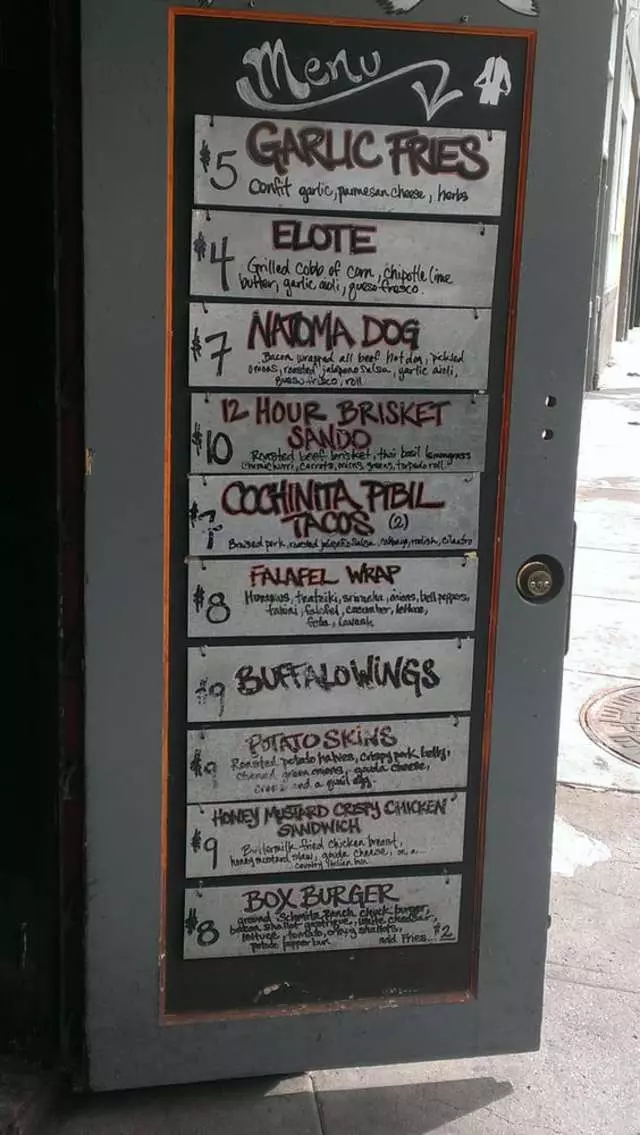 Menu
$5 GARLIC FRIES
Confit garlic, parmesan cheese, herbs
$4 ELOTE
Grilled cobb of corn, chipotle lime
butter, garlic aioli, queso fresco.
$7 NATOMA DOG
Bacon wrapped all beef hot dog, pickled
onions, roasted jalapeño salsa, garlic aioli,
queso fresco, roll
$10 12 HOUR BRISKET
SANDO
Roasted beef brisket, thai basil lemongrass
chimichurri, carrots, onions, greens, torpedo roll
$7 COCHINITA PIBIL
TACOS (2)
Braised pork, roasted jalapeño salsa, radish, cilantro
$8 FALAFEL WRAP
Hummus, tzatziki, sriracha, onions, bell peppers,
tahini, falafel, cucumber, lettuce,
feta, lavash
$9 BUFFALO WINGS
$9 POTATO SKINS
Roasted potato halves, crispy pork belly,
green onions, gouda cheese,
and a quail egg.
$9 HONEY MUSTARD CRISPY CHICKEN
SANDWICH
Buttermilk fried chicken breast,
honey mustard slaw, gouda cheese, on a
country Italian bun
$8 BOX BURGER
ground Schmitz Ranch chuck burger,
bacon shallot gastrique, white cheddar,
lettuce, tomato, crispy shallots,
potato pepper bun add Fries... $2